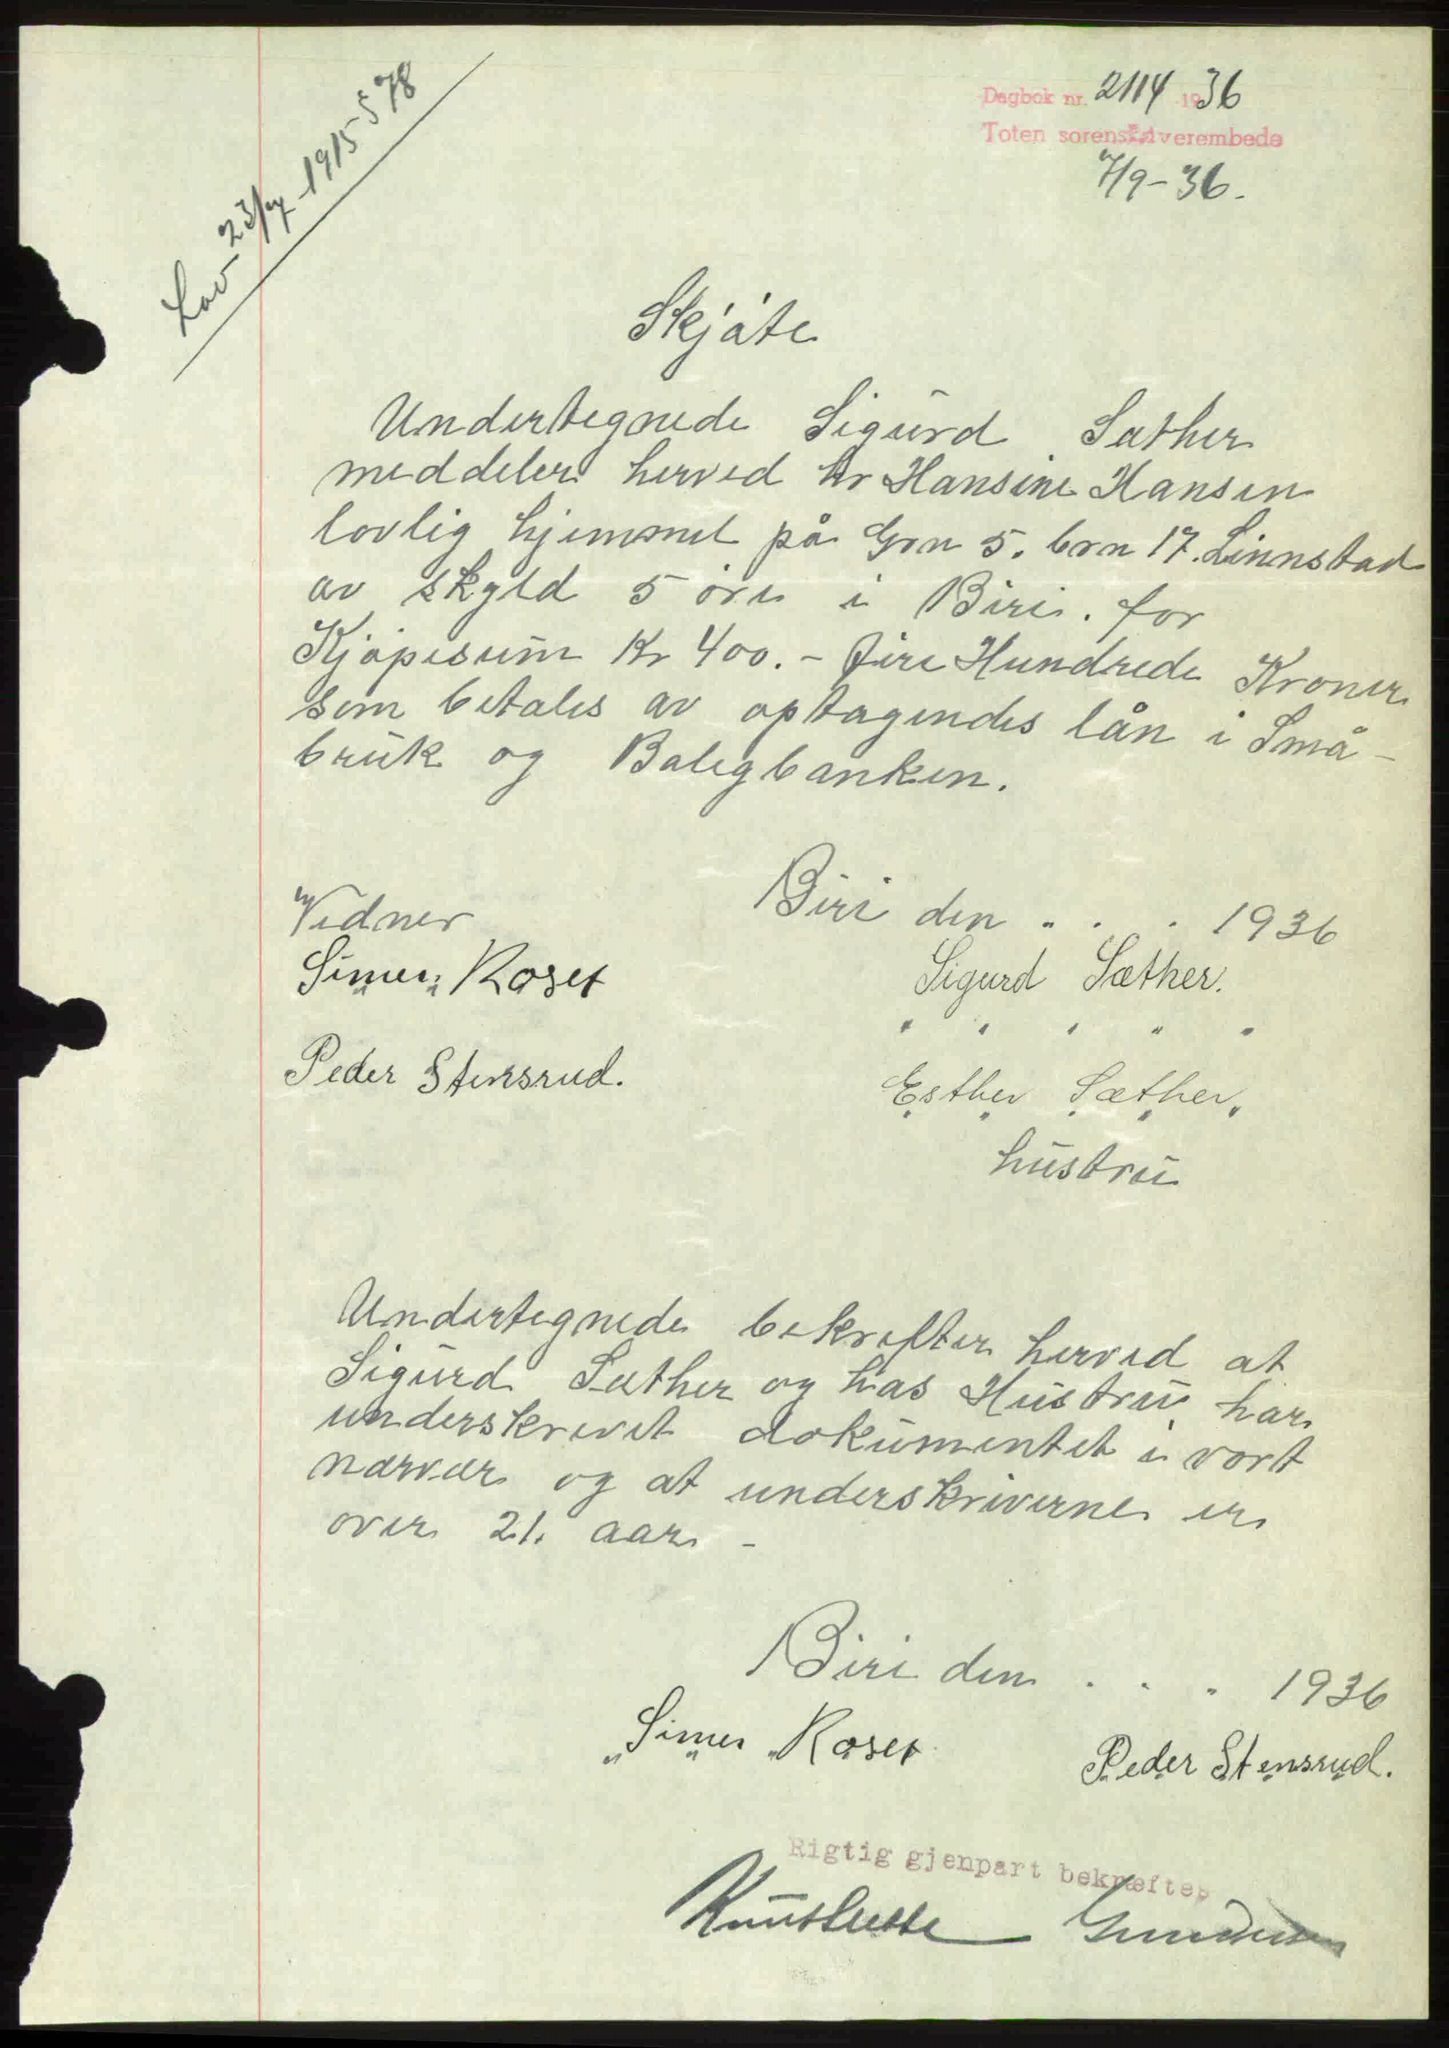 Lov 23/7-1915 § 78
Dagbok nr. 2114 1936
Toten sorenskriverembede
7/9-36.
Skjøte
Undertegnede Sigurd Sæther
meddeler herved hr Hansine Hansen
lovlig hjemmel på Grn 5. brn 17. Linnstad
av skyld 5 øre i Biri. for
Kjøpesum Kr 400.- fire Hundrede Kroner
som betales av optagendes lån i Små-
bruk og Boligbanken.
Vidner
Biri den . . . 1936
Simen Roset
Sigurd Sæther.
Peder Stensrud.
Esther Sæther
hustru
Undertegnede bekrefter herved at
Sigurd Sæther og has Hustru har
underskrevet dokumentet i vort
nærvær og at underskriverne er
over 21. aar -
Biri den . . . 1936
Simen Roset
Peder Stensrud.
Rigtig gjenpart bekræftes